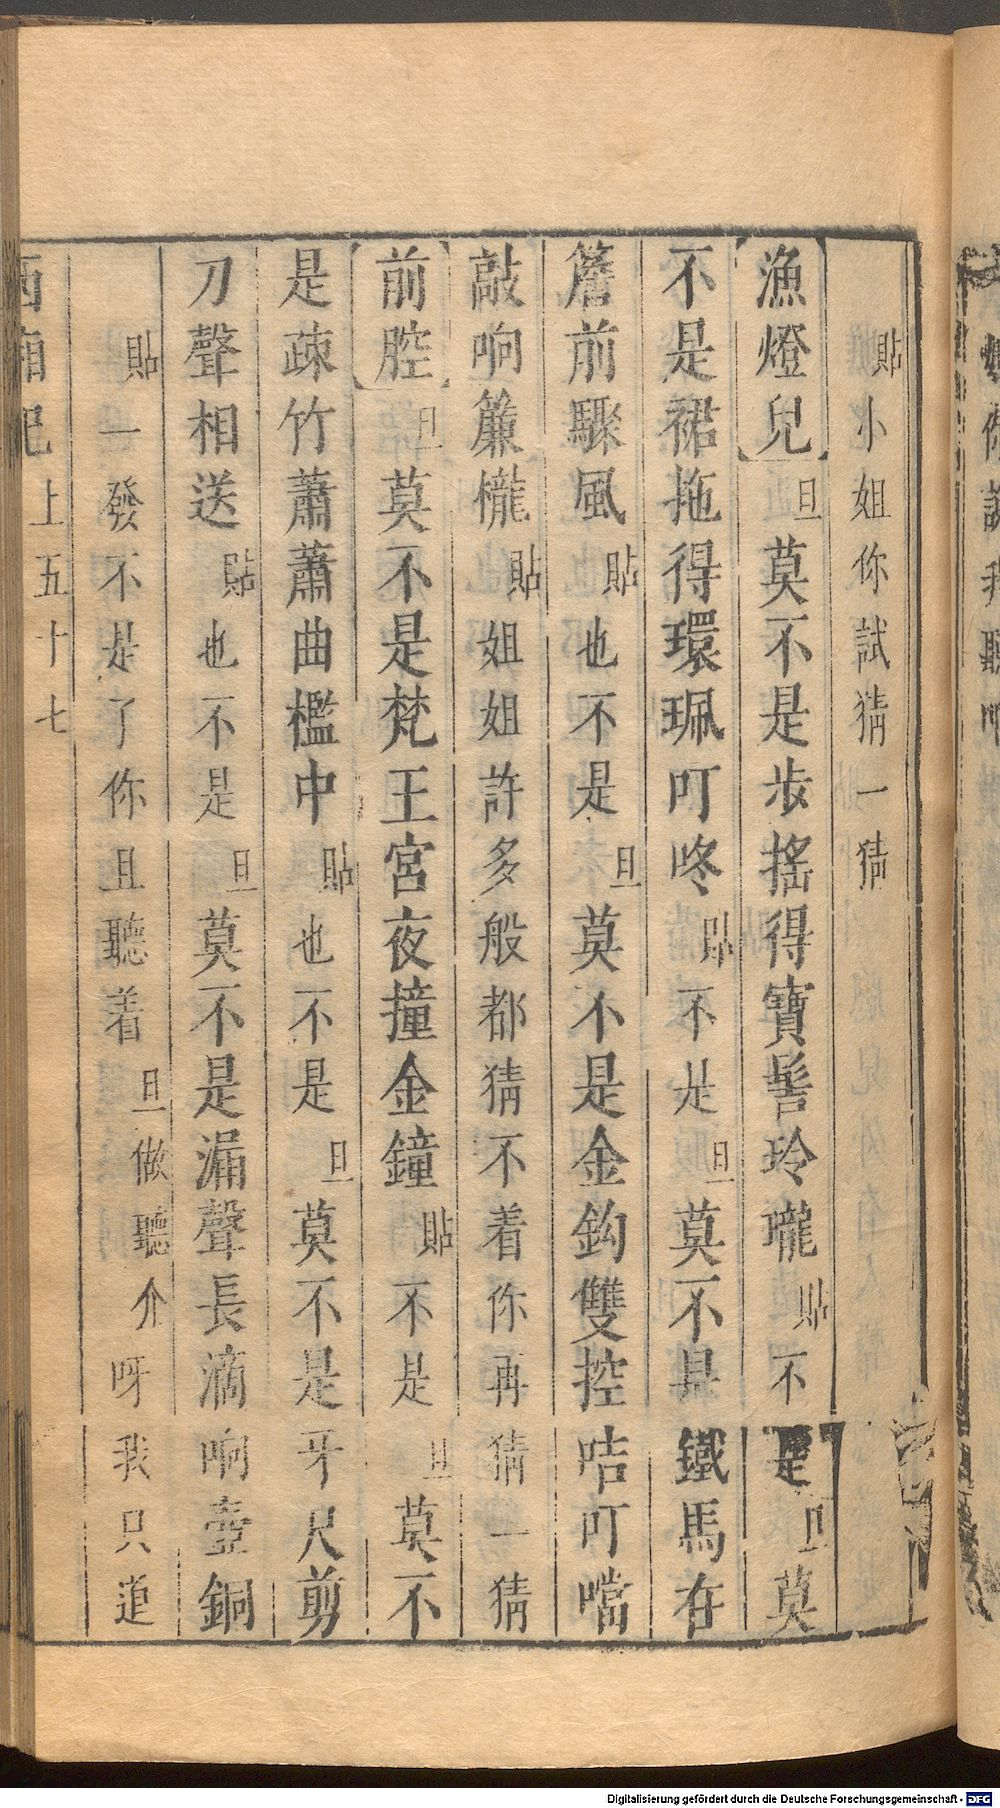 貼小姐你試猜一猜
【漁燈兒】旦莫不是步搖得寶髻玲瓏貼不是旦莫
不是裙拖得環珮叮咚貼不是旦莫不是鐵馬在
簷前驟風貼也不是旦莫不是金鈎雙控咭叮噹
敲响簾櫳貼姐姐許多般都猜不着你再猜一猜
【前腔】旦莫不是梵王宮夜撞金鐘貼不是旦莫不
是疎竹蕭蕭曲檻中貼也不是旦莫不是牙尺剪
刀聲相送貼也不是旦莫不是漏聲長滴响壺銅
貼一發不是了你且聽着旦做聽介呀我只道
西廂記 上 五十七
Digitalisierung gefördert durch die Deutsche Forschungsgemeinschaft - DFG